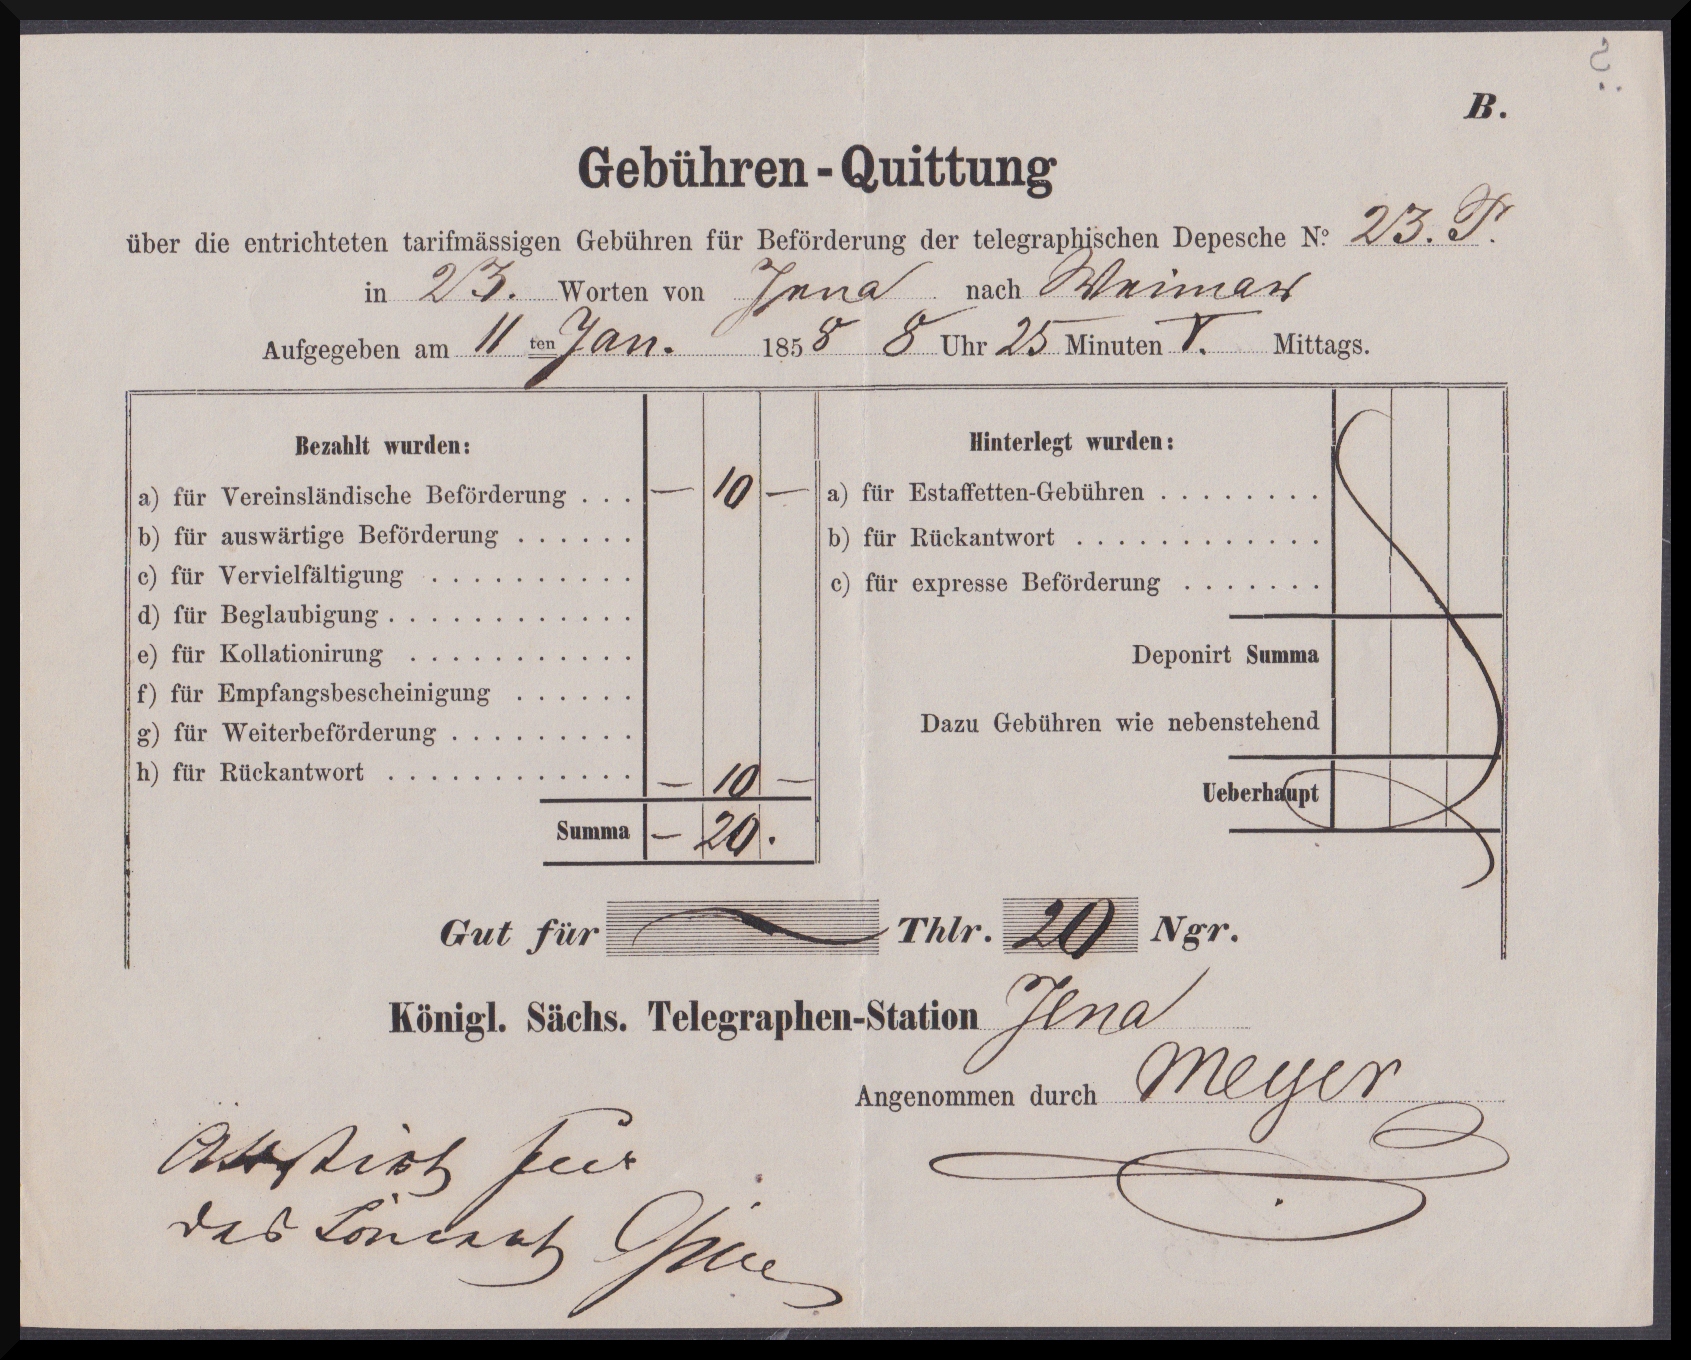 B.
Gebühren-Quittung
über die entrichteten tarifmässigen Gebühren für Beförderung der telegraphischen Depesche No. 23.
in 23. Worten von Jena nach Weimar
Aufgegeben am 11 ten Jan. 1858 8 Uhr 25 Minuten V. Mittags.
Bezahlt wurden:
a) für Vereinsländische Beförderung . . . — 10 —
b) für auswärtige Beförderung . . . . . .
c) für Vervielfältigung . . . . . . . . . .
d) für Beglaubigung . . . . . . . . . . . .
e) für Kollationirung . . . . . . . . . . .
f) für Empfangsbescheinigung . . . . . .
g) für Weiterbeförderung . . . . . . . . .
h) für Rückantwort . . . . . . . . . . . . — 10 —
Summa — 20.
Hinterlegt wurden:
a) für Estaffetten-Gebühren . . . . . . . .
b) für Rückantwort . . . . . . . . . . . .
c) für expresse Beförderung . . . . . . .
Deponirt Summa
Dazu Gebühren wie nebenstehend
Ueberhaupt
Gut für — Thlr. 20 Ngr.
Königl. Sächs. Telegraphen-Station Jena
Angenommen durch Meyer
das